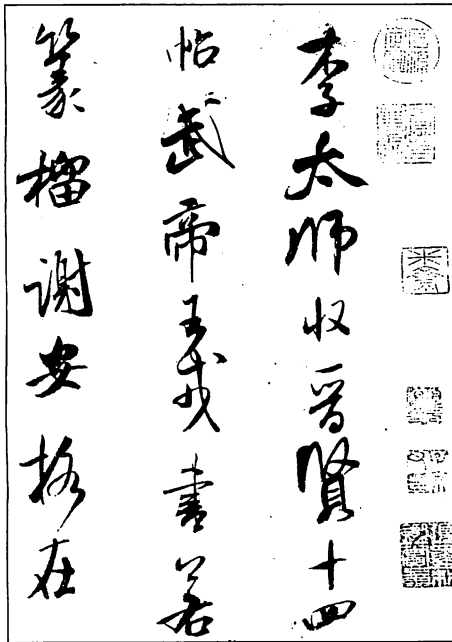 李太師收晉賢十四
帖武帝王戎書若
篆榴謝安格在